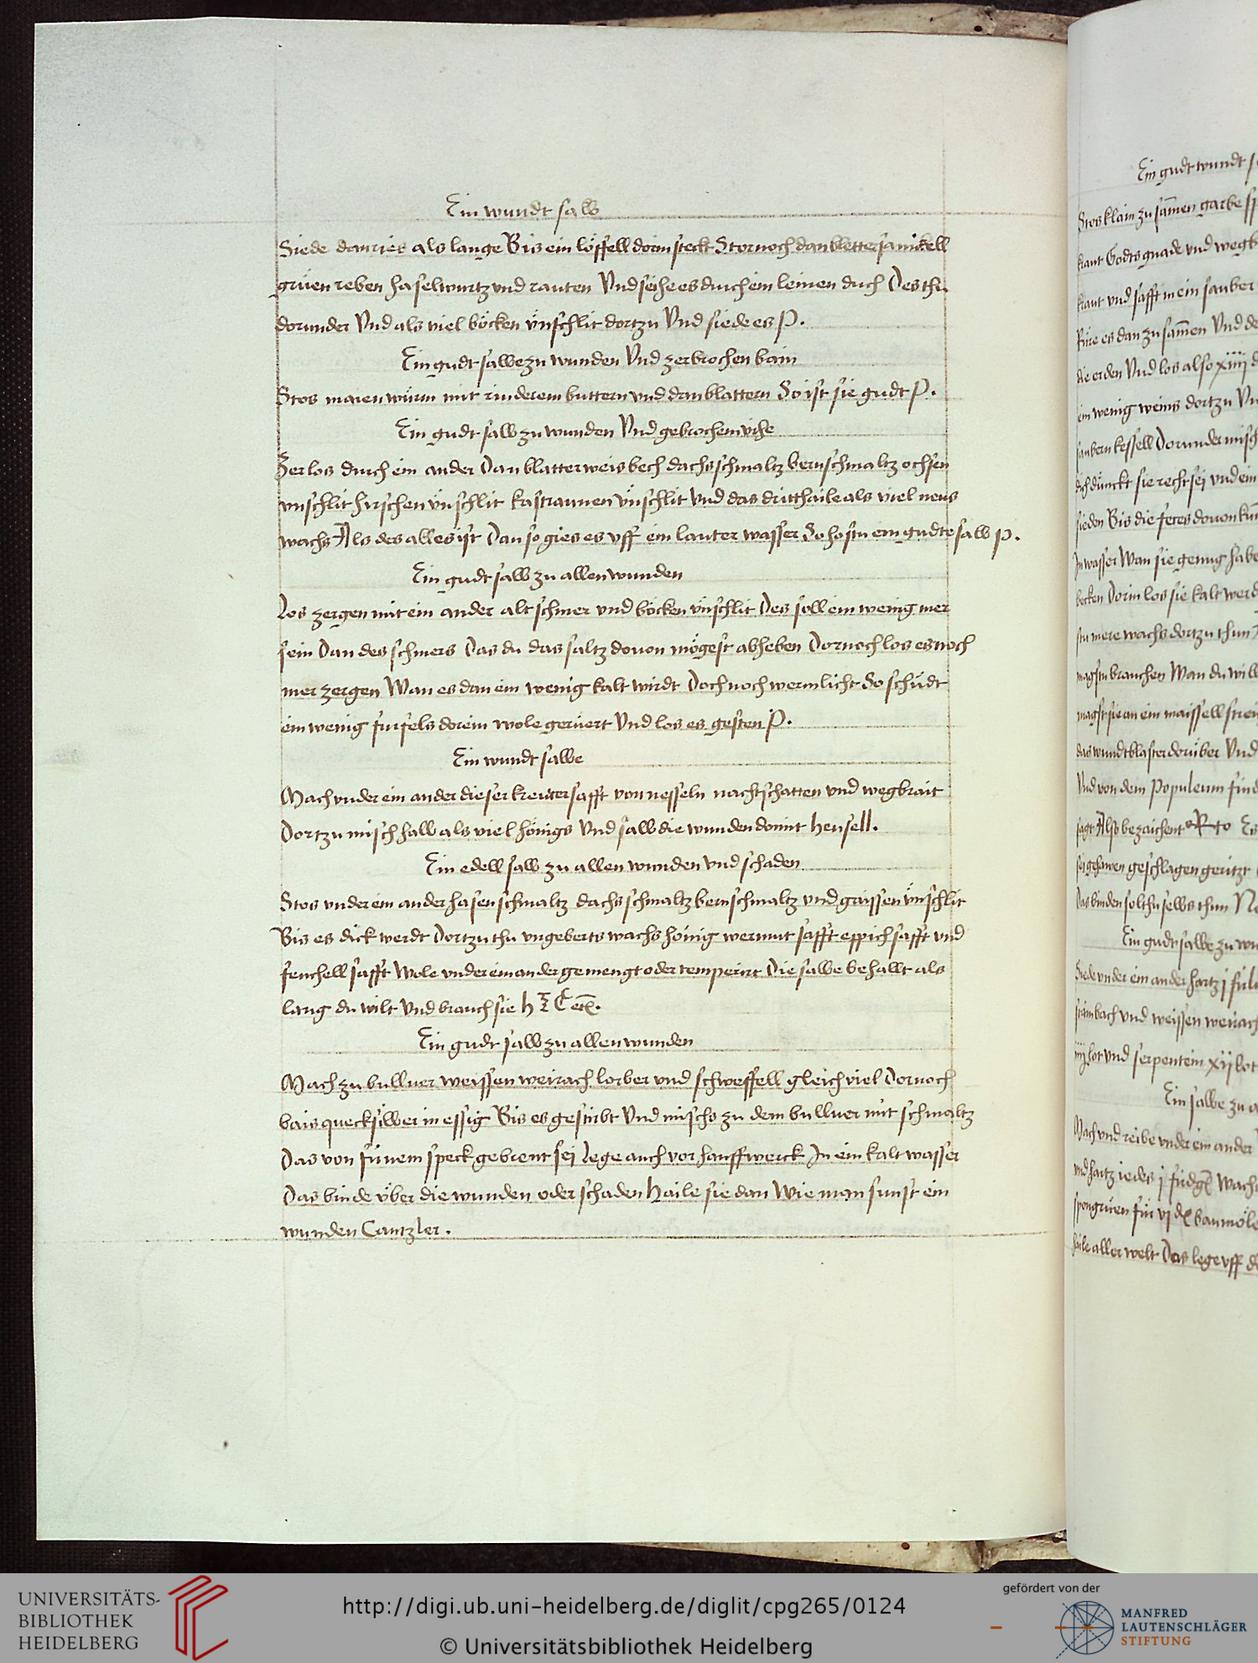 Ein wundt salb
Siede danries als lange Bis ein löffell dorin steckt Stos noch dan bletter sanickell
grüen reben haselwurtz und rauten Und seihe es durch ein leinen duch Des thu
dorunder Und als viel böcken ünschlit dortzu Und siede es P.
Ein gudt salbe zu wunden Und zerbrochen bain
Stos maien würm mit rinderem buttern und dan blattern So ist sie gudt P.
Ein gudt salb zu wunden Und gebrochen viehe
Zerlos durch ein ander Dan blatter weis bech dachsschmaltz bernschmaltz ochsen
unschlit hirschen ünschlit kastraunen ünschlit Und das dritthaile als viel neus
wachs Als des alles ist Dan so gies es uff ein lauter wasser So hostu ein gudte salb P.
Ein gudt salb zu allen wunden
Los zergen mit ein ander alt schmer und böcken ünschlit Des soll ein wenig mer
sein Dan des schmers Das du das saltz dovon mögest abheben Dornoch los es noch
mer zergen Wan es dan ein wenig kalt wirdt Doch noch wermlicht So schüdt
ein wenig dorein wole gerüert Und los es gesten P.
Ein wundt salbe
Mach under ein ander dieser kreüter safft von nesseln nachtschatten und wegbrait
Dortzu misch halb als viel hönigs Und salb die wunden domit Hensell.
Ein edell salb zu allen wunden und schaden
Stos under ein ander hasenschmaltz dachsschmaltz bernschmaltz und gaissen ünschlit
Bis es dick werdt Dortzu thu ungeberts wachs hönig wermut safft eppich safft und
fenchell safft Wole under einander gemengt oder temperirt Die salbe behallt als
lang du wilt Und brauch sie
Ein gudt salb zu allen wunden
Mach zu bullver weissen weirach lorber und schweffell gleich viel Dornoch
bais quecksilber in essig Bis es gestirbt Und mischs zu dem bullver mit schmaltz
Das von speck gebrent sei Lege auch vor hanffwerck In ein kalt wasser
Das binde über die wunden oder schaden Haile sie dan Wie man sunst ein
wunden Cantzler.
Ein gudt wundt
Stos klain zu samen garbe
kraut Godts gnade und
kraut und safft in ein sauber
Rüre es dan zu samen Und
die erden Und los also xiiij
ein wenig weins dortzu
saubern kessell Dorunder
dich dünckt sie recht sei und ein
sieden Bis die feces dovon
In wasser Wan sie genug
becken Dorin los sie kalt
stu mere wachs dortzu thun
magstu brauchen Wan du
magst sie an ein maissell
das wundtblaster dorüber Und
Und von dem Populeum
sagt Also bezaichent
geschlagen geritzt
Das binden solthu selbs thun
Ein gudt salbe zu
Siede under ein ander hartz j
und weissen weirach
iiij lot und serpentein xij lot
Ein salbe zu
Mach und reibe under ein ander
und hartz iedes j
spongrüen für vj baumöle
haile aller welt Das lege uff
UNIVERSITÄTS-
BIBLIOTHEK
HEIDELBERG
http://digi.ub.uni-heidelberg.de/diglit/cpg265/0124
© Universitätsbibliothek Heidelberg
gefördert von der
MANFRED
LAUTENSCHLÄGER
STIFTUNG